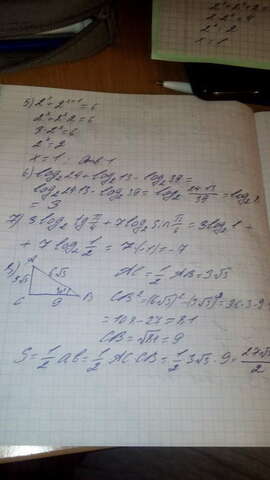 5) 2ˣ + 2ˣ⁺¹ = 6
2ˣ + 2ˣ 2 = 6
3·2ˣ = 6
2ˣ = 2
x = 1
6) log₂ 24 + log₂ 13 - log₂ 39 =
log₂ 24·13 - log₂ 39 = log₂ 24·13/39 = log₂
= 3
7) 3 log₂ tg π/4 + 7 log₂ sin π/6 = 3 log₂ 1 +
+ 7 log₂ 1/2 = 7(-1) = -7
8) A
3√3 6√3
C 9 B
AC = 1/2 AB = 3√3
CB² = (6√3)² - (3√3)² = 36·3 - 9
= 108 - 27 = 81
CB = √81 = 9
S = 1/2 ab = 1/2 AC CB = 1/2 3√3 · 9 = 27√3/2